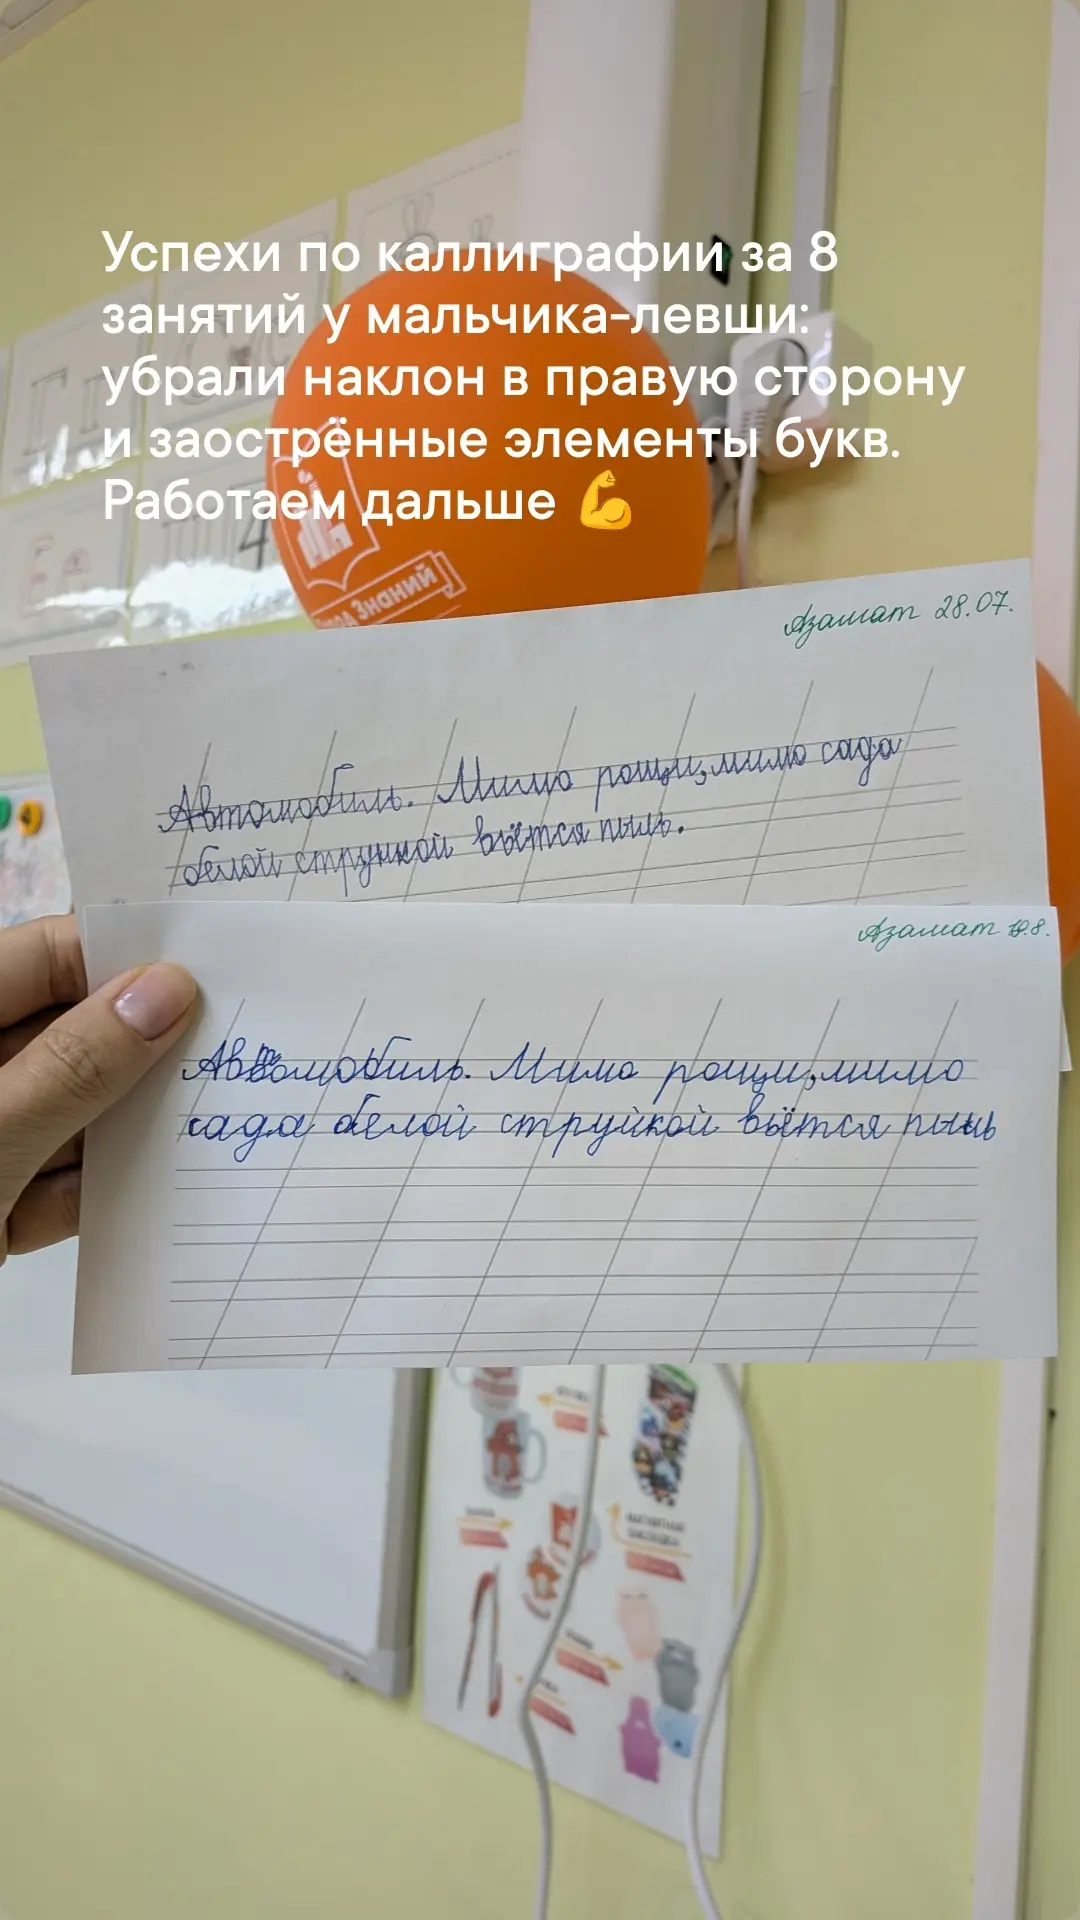 Успехи по каллиграфии за 8
занятий у мальчика-левши:
убрали наклон в правую сторону
и заострённые элементы букв.
Работаем дальше 💪
Знаний
Азамат 28.07.
Автомобиль. Мимо рощи, мимо сада
белой стрункой вьётся пыль.
Азамат 19.8.
Автомобиль. Мимо рощи, мимо
сада белой струйкой вьётся пыль